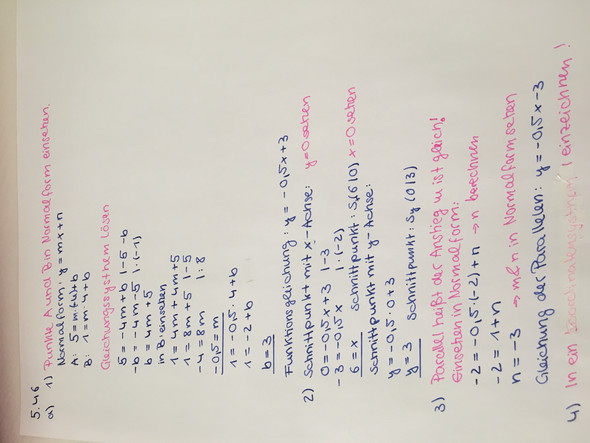 5.46
a) 1) Punkte A und B in Normalform einsetzen.
Normalform: y = mx+n
A: 5 = m·(-4)+b
B: 1 = m·4+b
Gleichungssysthem lösen
5 = -4m+b |-5 -b
-b = -4m-5 |:(-1)
b = 4m+5
in B einsetzen
1 = 4m + 4m+5
1 = 8m +5 |-5
-4 = 8m |:8
-0,5 = m
1 = -0,5·4+b
1 = -2+b
b=3
Funktionsgleichung: y = -0,5x+3
2) Schnittpunkt mit x-Achse: y=0 setzen
0 = -0,5x+3 |-3
-3 = -0,5x |:(-2)
6 = x Schnittpunkt: Sx(6|0)
Schnittpunkt mit y-Achse: x=0 setzen
y = -0,5·0+3
y = 3 Schnittpunkt: Sy (0|3)
3) Parallel heißt der Anstieg m ist gleich!
Einsetzen in Normalform:
-2 = -0,5·(-2)+n → n berechnen
-2 = 1+n
n = -3 → m & n in Normalform setzen
Gleichung der Parallelen: y = -0,5x-3
4) In ein Koordinatensysthem einzeichnen!